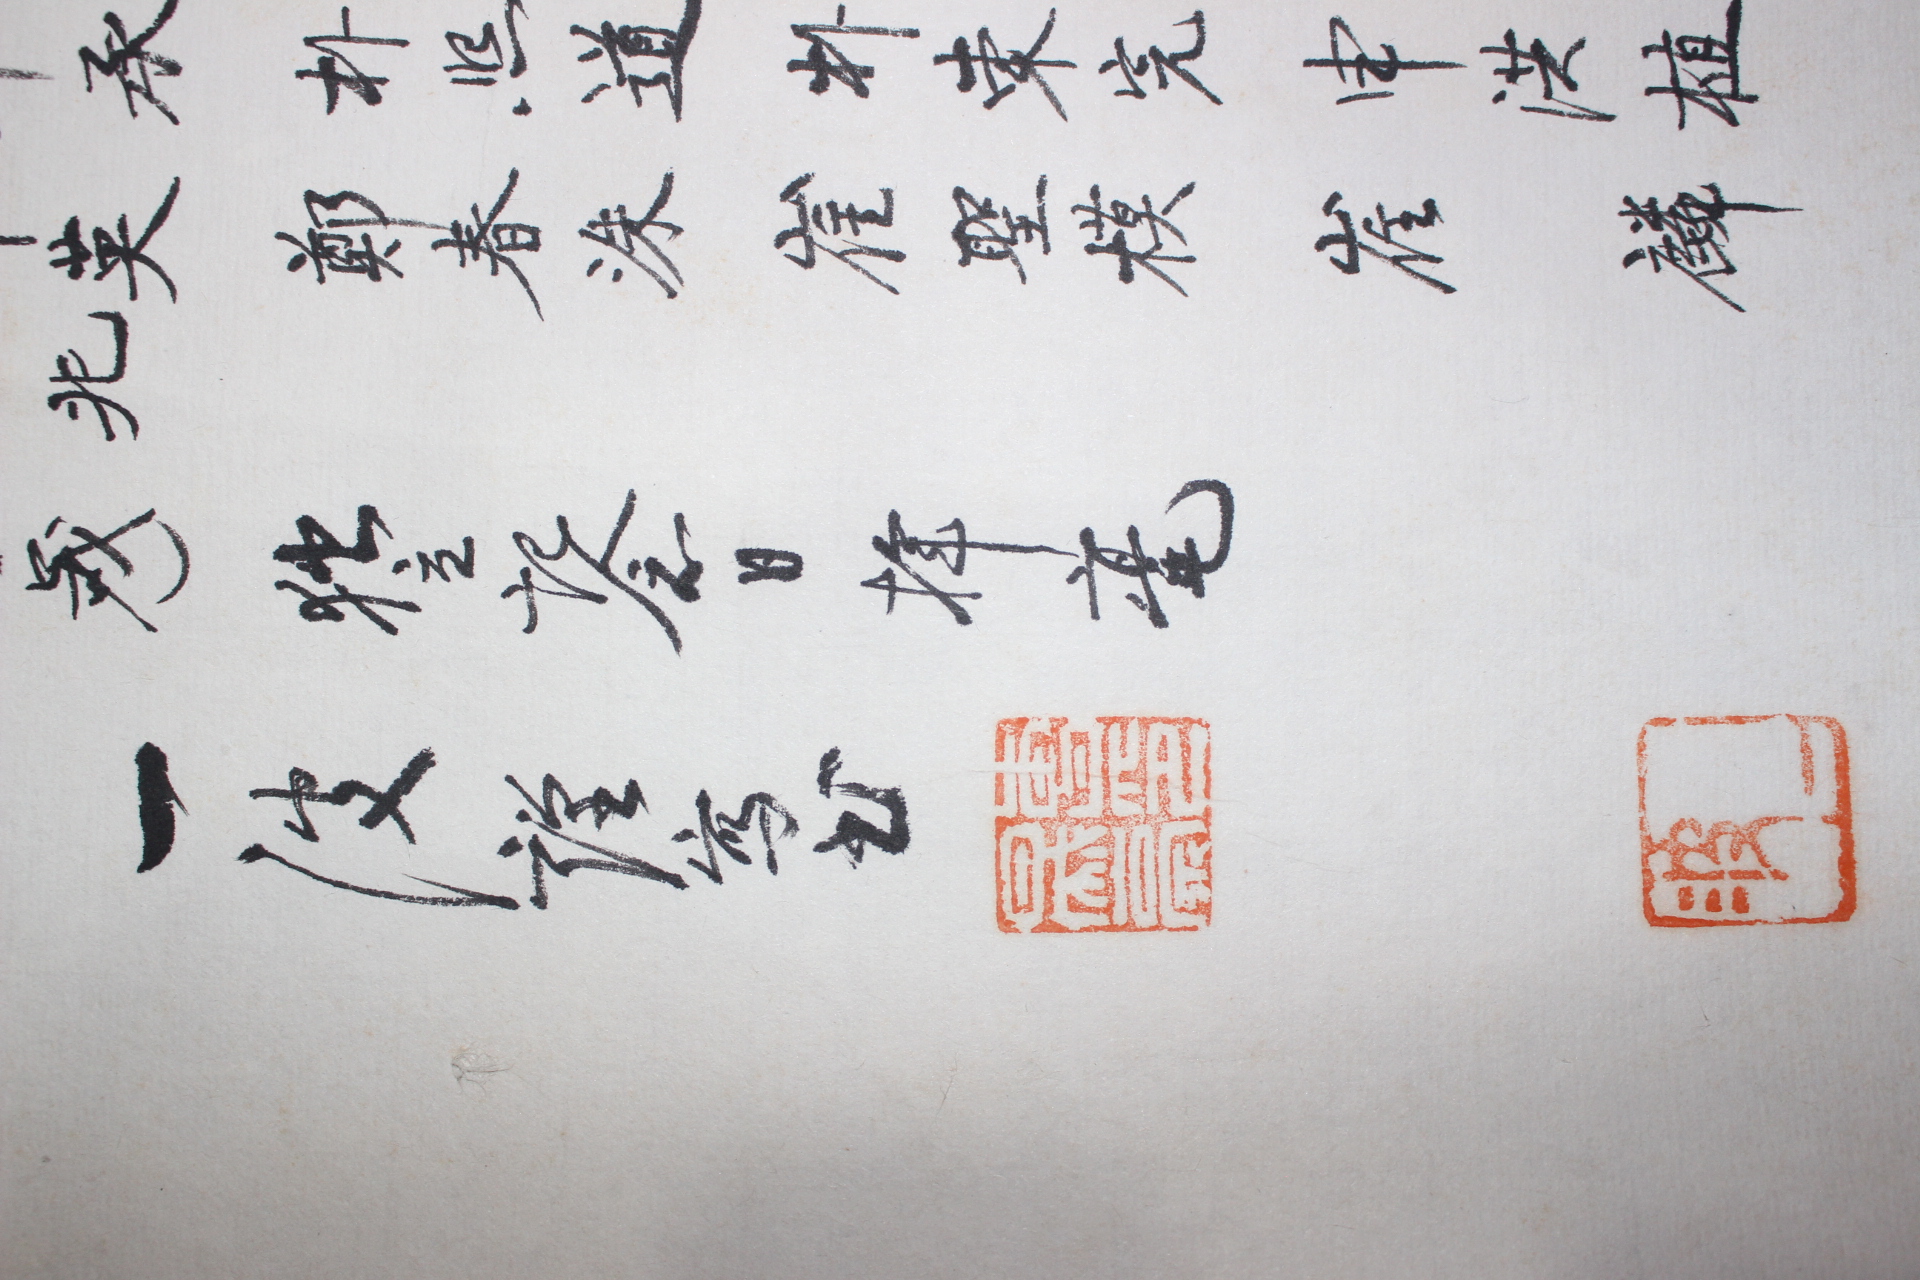 承 朴熙道 朴東完 申洪植
英 鄭春洙 崔聖模 崔麟
兆
歲) 独立記念日 揮毫
一波謹寫書
一波